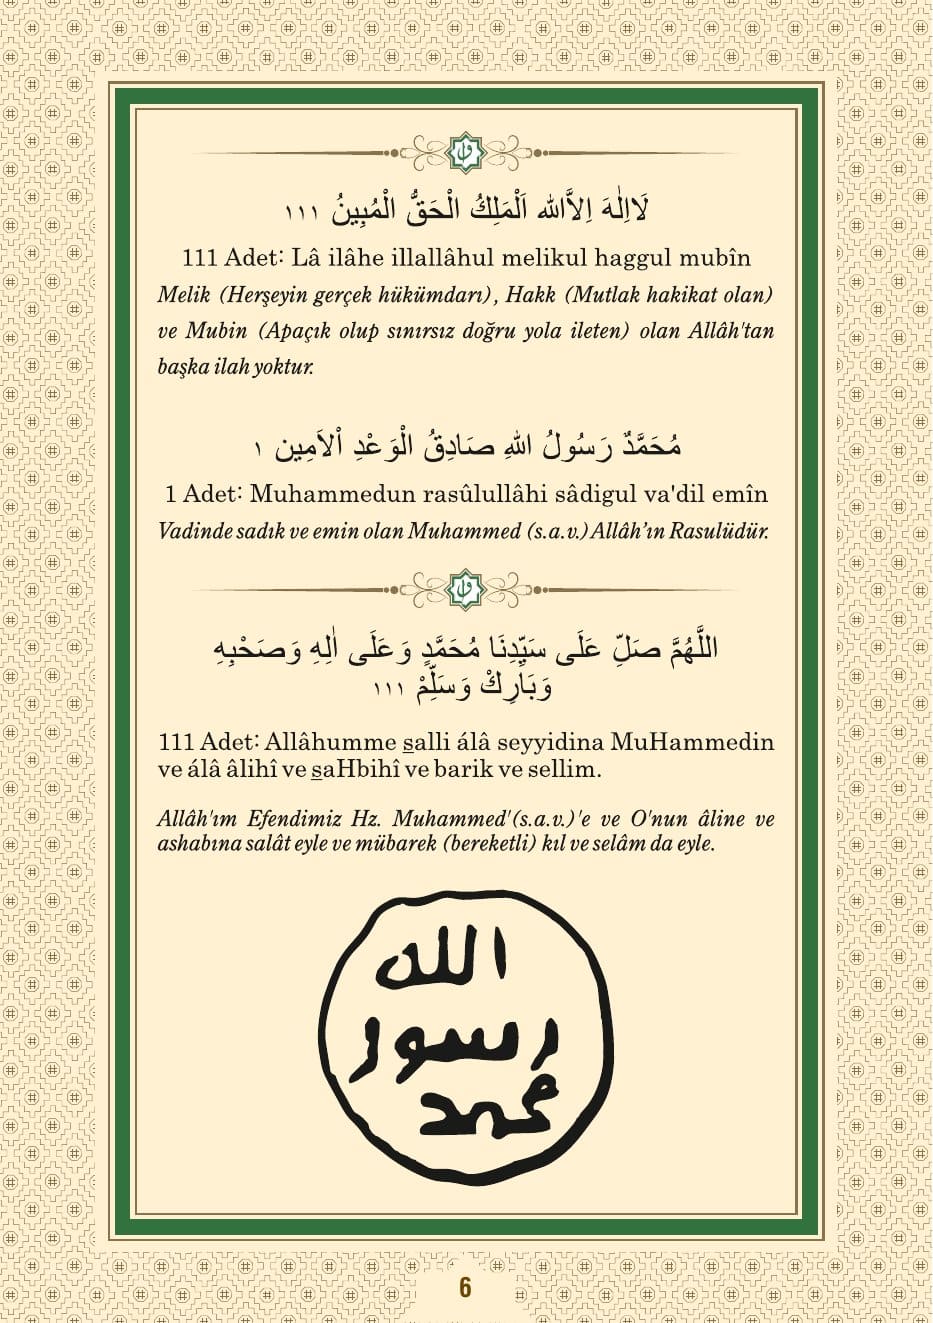 لَااِلٰهَ اِلاَّاللّٰه اَلْمَلِكُ الْحَقُّ الْمُبِينُ ١١١
111 Adet: Lâ ilâhe illallâhul melikul haggul mubîn
Melik (Herşeyin gerçek hükümdarı), Hakk (Mutlak hakikat olan)
ve Mubin (Apaçık olup sınırsız doğru yola ileten) olan Allâh'tan
başka ilah yoktur.
مُحَمَّدٌ رَسُولُ اللّٰهِ صَادِقُ الْوَعْدِ اْلاَمِين ١
1 Adet: Muhammedun rasûlullâhi sâdigul va'dil emîn
Vadinde sadık ve emin olan Muhammed (s.a.v.) Allâh’ın Rasulüdür.
اللَّهُمَّ صَلِّ عَلَى سَيِّدِنَا مُحَمَّدٍ وَعَلَى اٰلِهِ وَصَحْبِهِ
وَبَارِكْ وَسَلِّمْ ١١١
111 Adet: Allâhumme salli álâ seyyidina MuHammedin
ve álâ âlihî ve saHbihî ve barik ve sellim.
Allâh'ım Efendimiz Hz. Muhammed'(s.a.v.)'e ve O'nun âline ve
ashabına salât eyle ve mübarek (bereketli) kıl ve selâm da eyle.
الله
رسول
محمد
6